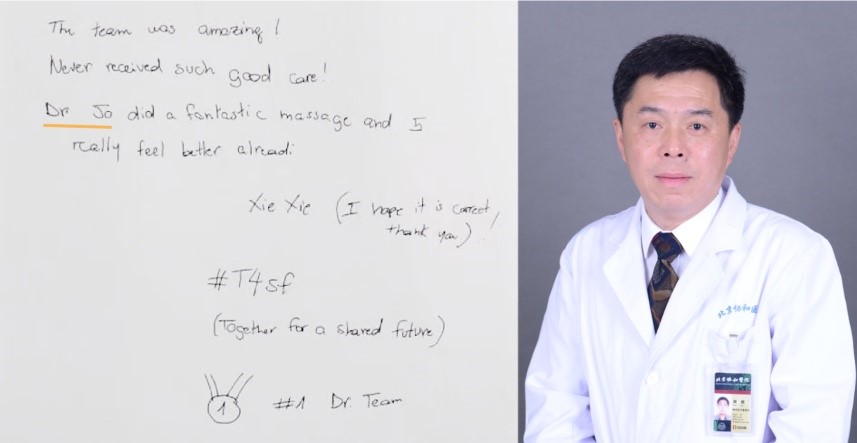 The team was amazing!
Never received such good care!
Dr Jo did a fantastic massage and I
really feel better alreadi
Xie Xie (I hope it is correct,
thank you)
#T4sf
(Together for a shared future)
1 #1 Dr. Team
北京协和医
北京协和医院